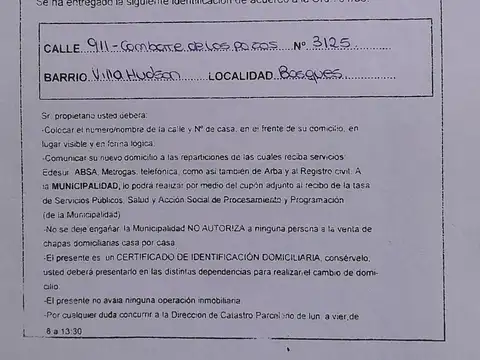 Se ha entregado la siguiente identificación de acuerdo a
CALLE 911-Combate de los pozos Nº 3125
BARRIO Villa Hudson LOCALIDAD Bosques
Sr. propietario usted deberá:
-Colocar el número/nombre de la calle y Nº de casa, en el frente de su domicilio, en
lugar visible y en forma lógica.
-Comunicar su nuevo domicilio a las reparticiones de las cuales reciba servicios:
Edesur, ABSA, Metrogas, telefónica, como así también de Arba y al Registro civil. A
la MUNICIPALIDAD, lo podrá realizar por medio del cupón adjunto al recibo de la tasa
de Servicios Públicos, Salud y Acción Social de Procesamiento y Programación
(de la Municipalidad)
-No se deje engañar, la Municipalidad NO AUTORIZA a ninguna persona a la venta de
chapas domiciliarias casa por casa
-El presente es un CERTIFICADO DE IDENTIFICACIÓN DOMICILIARIA, consérvelo,
usted deberá presentarlo en las distintas dependencias para realizar el cambio de domi-
cilio.
-El presente no avala ninguna operación inmobiliaria
-Por cualquier duda concurrir a la Dirección de Catastro Parcelario de lun. a vier. de
8 a 13:30